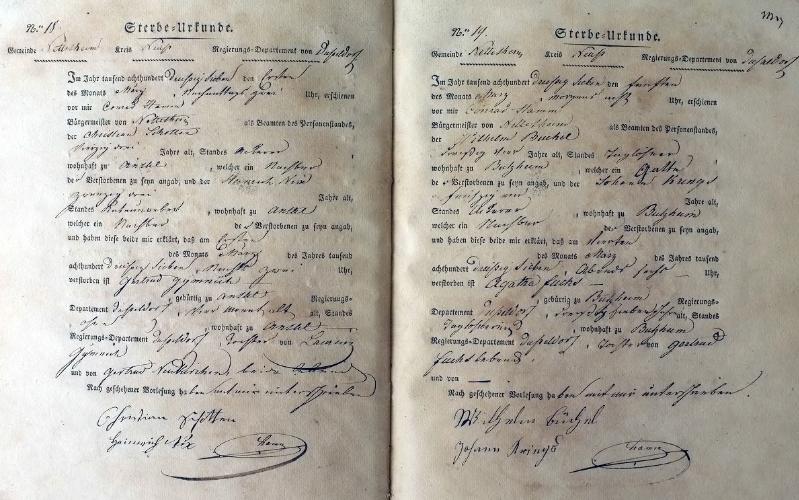 No. 18.
Sterbe-Urkunde.
Gemeinde Nettesheim Kreis Neuß Regierungs-Departement von Düsseldorf
Im Jahr tausend achthundert dreißig sieben den Ersten
des Monats März Nachmittags zwei Uhr, erschienen
vor mir Conrad Hamm
Bürgermeister von Nettesheim als Beamten des Personenstandes,
der Christian Schotten
vierzig drei Jahre alt, Standes Ackerer
wohnhaft zu Anstel, welcher ein Nachbar
des Verstorbenen zu seyn angab, und der Heinrich Nix
Jahre alt,
Standes, wohnhaft zu Anstel
welcher ein Nachbar des Verstorbenen zu seyn angab,
und haben diese beide mir erklärt, daß am Ersten
des Monats März des Jahres tausend
achthundert dreißig sieben, zwei Uhr,
verstorben ist Gertrud Gymnich
, gebürtig zu Anstel Regierungs-
Departement Düsseldorf, vier Monat alt, Standes
, wohnhaft zu Anstel
Regierungs-Departement Düsseldorf, Tochter von
Gymnich
und von Gertrud beide
Nach geschehener Vorlesung haben mit mir unterschrieben
Christian Schotten
Heinrich Nix Hamm
No. 19.
Sterbe-Urkunde.
Gemeinde Nettesheim Kreis Neuß Regierungs-Departement von Düsseldorf
Im Jahr tausend achthundert dreißig sieben den fünften
des Monats März morgens acht Uhr, erschienen
vor mir Conrad Hamm
Bürgermeister von Nettesheim als Beamten des Personenstandes,
der Wilhelm Büchel
dreißig vier Jahre alt, Standes Taglöhner
wohnhaft zu Butzheim, welcher ein Gatte
der Verstorbenen zu seyn angab, und der Johann Krings
Jahre alt,
Standes Ackerer, wohnhaft zu Butzheim
welcher ein Nachbar der Verstorbenen zu seyn angab,
und haben diese beide mir erklärt, daß am vierten
des Monats März des Jahres tausend
achthundert dreißig sieben, Abends sechs Uhr,
verstorben ist Agatha Fuchs
, gebürtig zu Butzheim Regierungs-
Departement Düsseldorf, alt, Standes
Taglöhnerin, wohnhaft zu Butzheim
Regierungs-Departement Düsseldorf, Tochter von Gertrud
Fuchs
und von —
Nach geschehener Vorlesung haben mit mir unterschrieben.
Wilhelm Büchel
Johann Krings Hamm